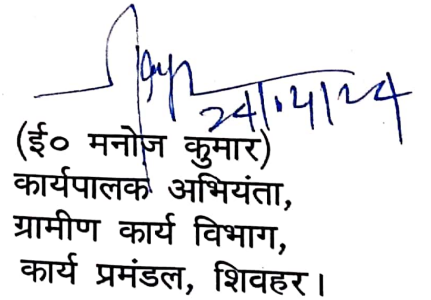 24/12/24
(ई० मनोज कुमार)
कार्यपालक अभियंता,
ग्रामीण कार्य विभाग,
कार्य प्रमंडल, शिवहर।